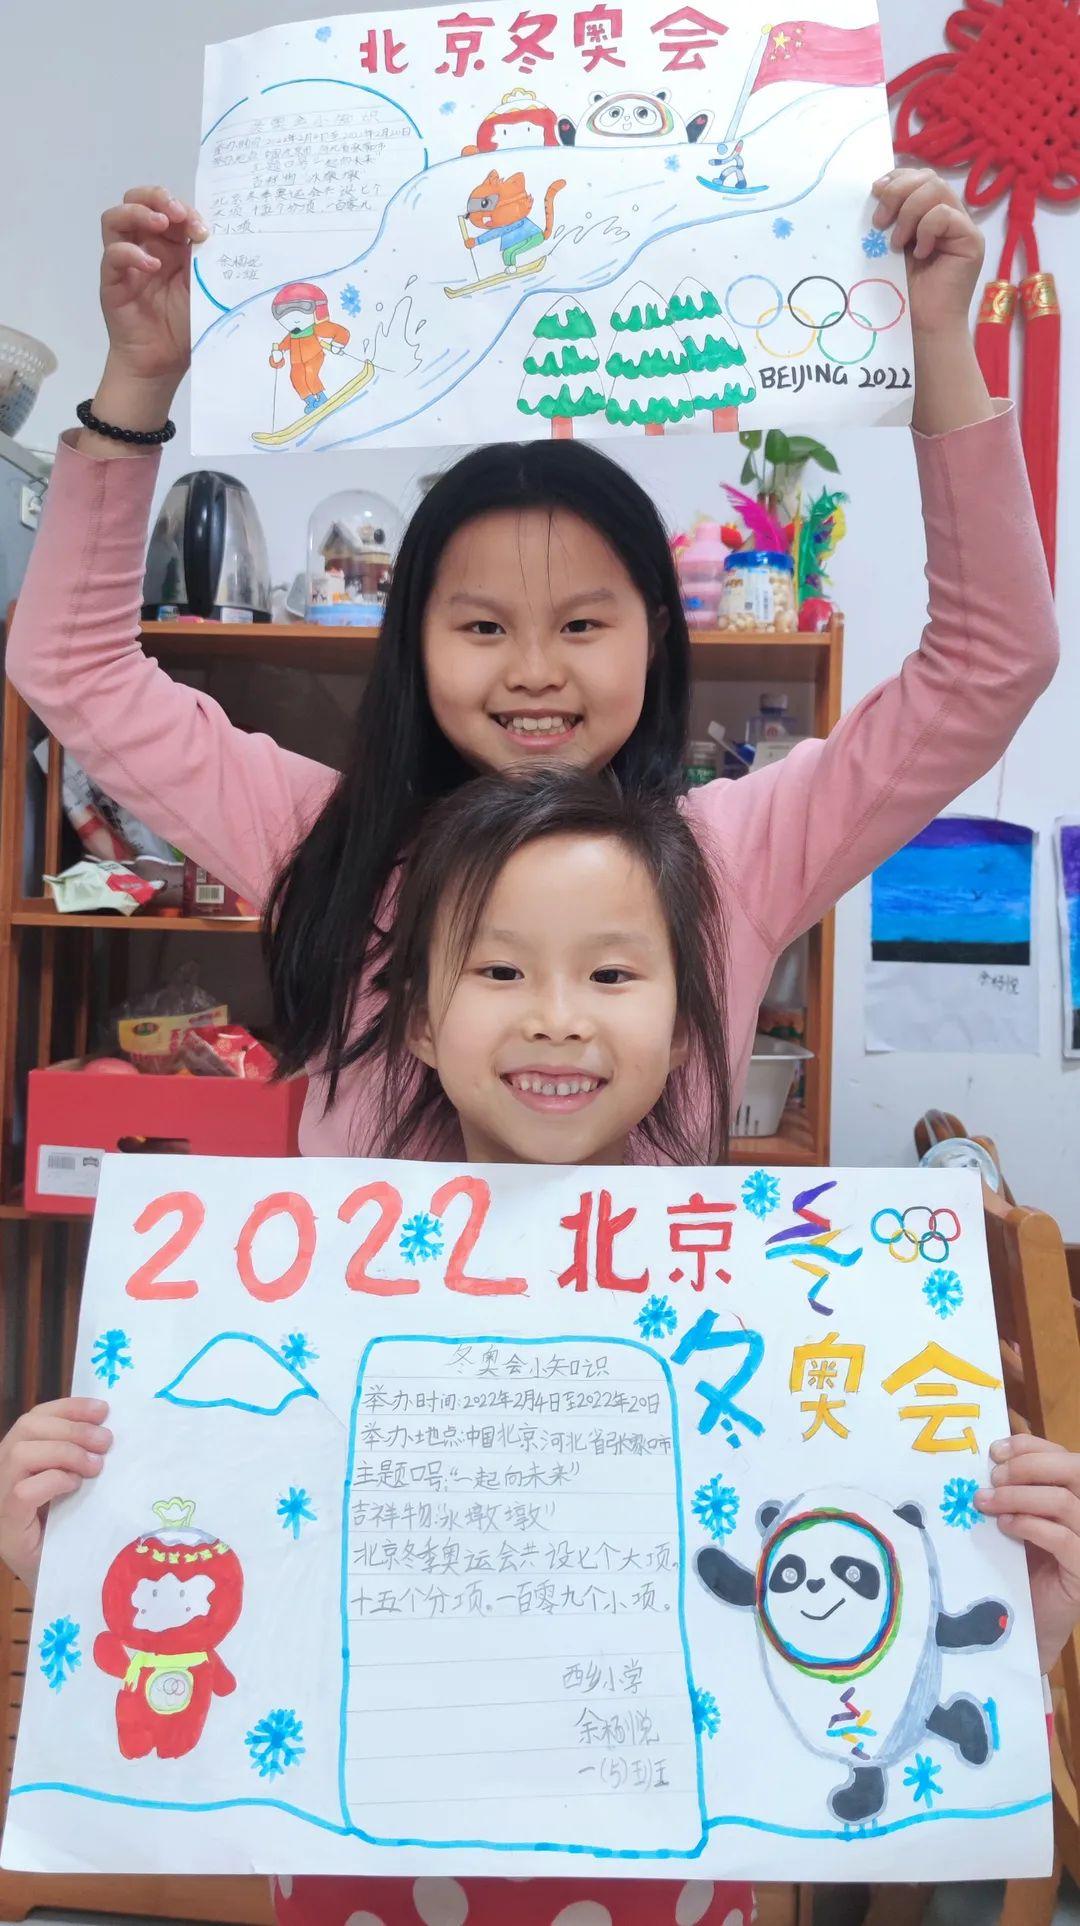 北京冬奥会
冬奥会小知识
举办时间:2022年2月4日至2022年2月20日
主题口号"一起向未来"
吉祥物:"冰墩墩"
北京冬季奥运会共设七个
大项,十五个分项,一百零九
个小项。
BEIJING 2022
2022北京
冬奥会
冬奥会小知识
举办时间:2022年2月4日至2022年20日
举办地点:中国北京河北省张家口市
主题口号:"一起向未来"
吉祥物:"冰墩墩"
北京冬季奥运会共设七个大项。
十五个分项。一百零九个小项。
西乡小学
余杨悦
一(5)班